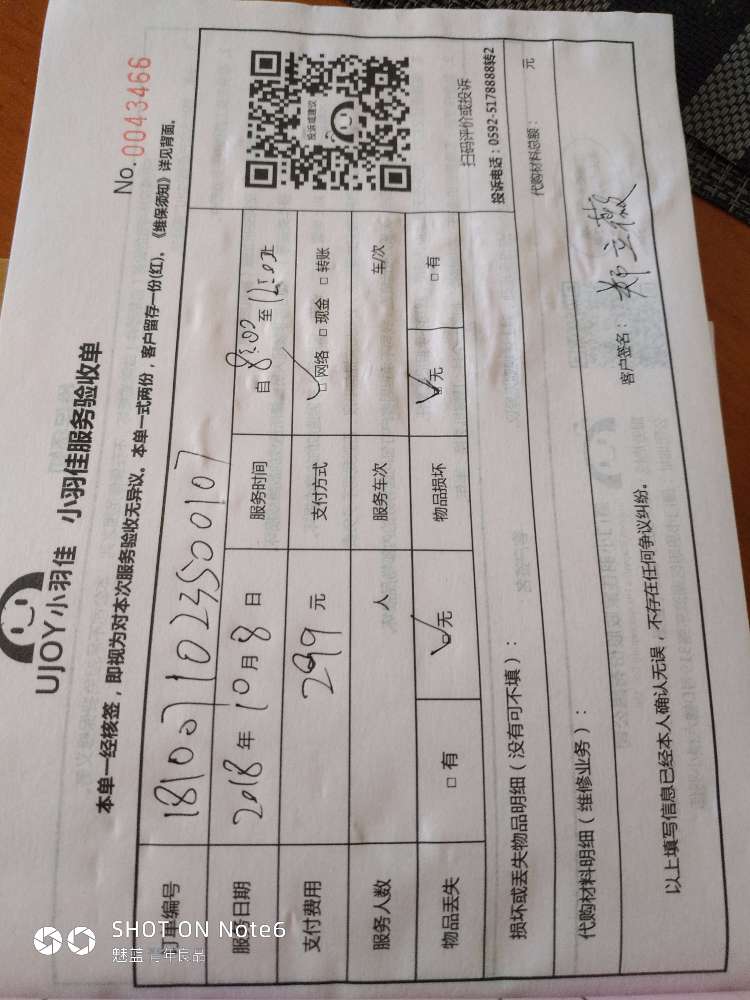 UJOY小羽佳 小羽佳服务验收单
No. 0043466
本单一经核签，即视为对本次服务验收无异议。本单一式两份，客户留存一份(红)。《维保须知》详见背面。
订单编号 1810071023500107
服务日期 2018年10月8日 服务时间 自8:00至12:00止
支付费用 299元 支付方式 □网络 □现金 □转账
服务人数 人 服务车次 车/次
物品丢失 □有 □无 物品损坏 □无 □有
投诉或建议
扫码评价或投诉
投诉电话：0592-5178888转2
损坏或丢失物品明细（没有可不填）：
代购材料明细（维修业务）： 代购材料总额： 元
以上填写信息已经本人确认无误，不存在任何争议纠纷。 客户签名：
SHOT ON Note6
魅蓝 青年良品